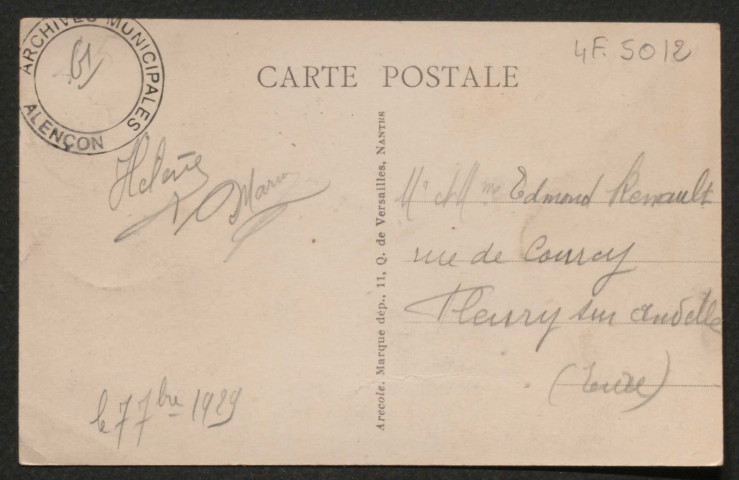 ARCHIVES MUNICIPALES
ALENÇON
61
4F. 5012
CARTE POSTALE
Hélène
Mario
le 7 7bre 1929
Arecole. Marque dép., 11, Q. de Versailles, NANTES
Mr et Mme Edmond Renault
rue de Courcy
Fleury sur andelle
(Eure)